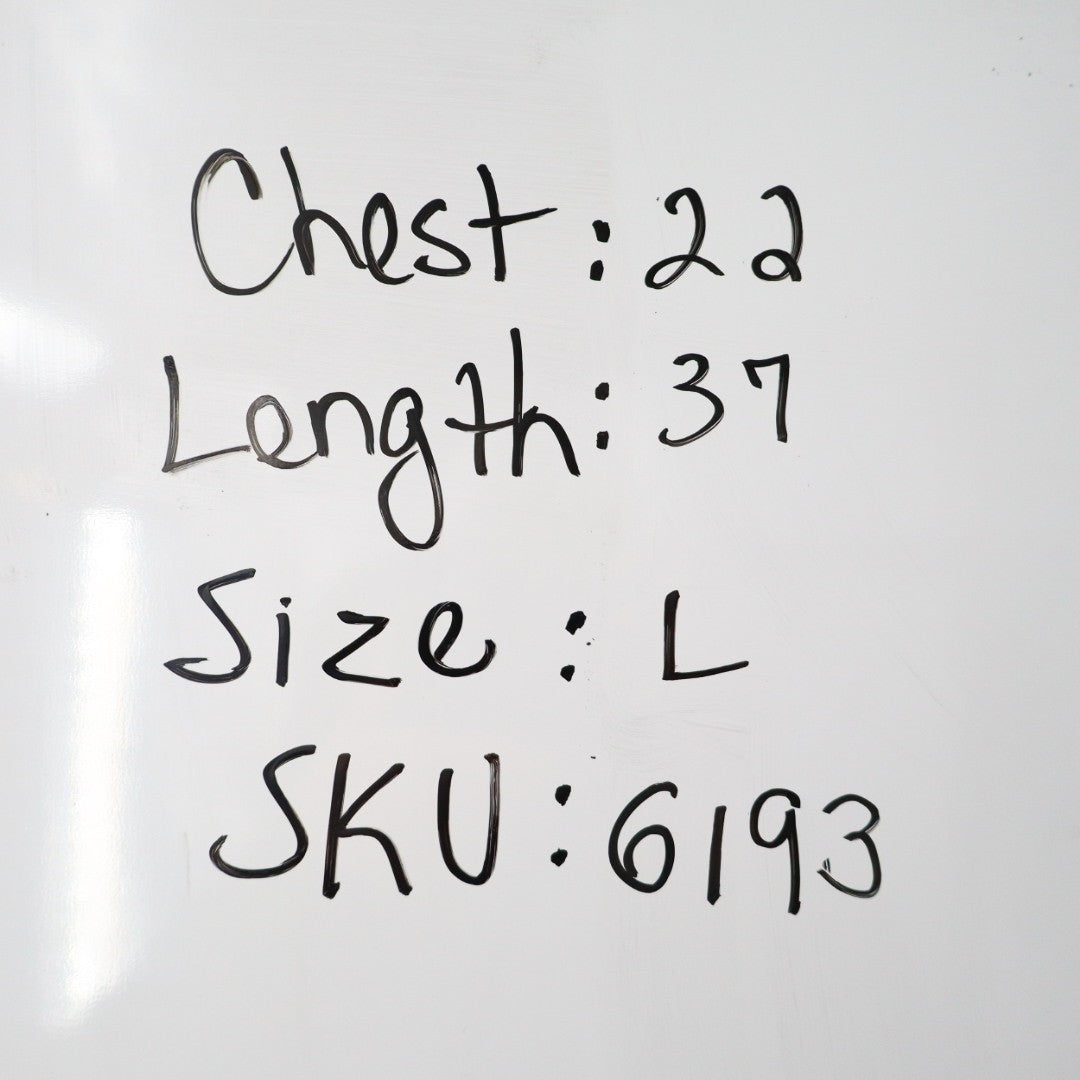 Chest: 22
Length: 37
Size: L
SKU: 6193